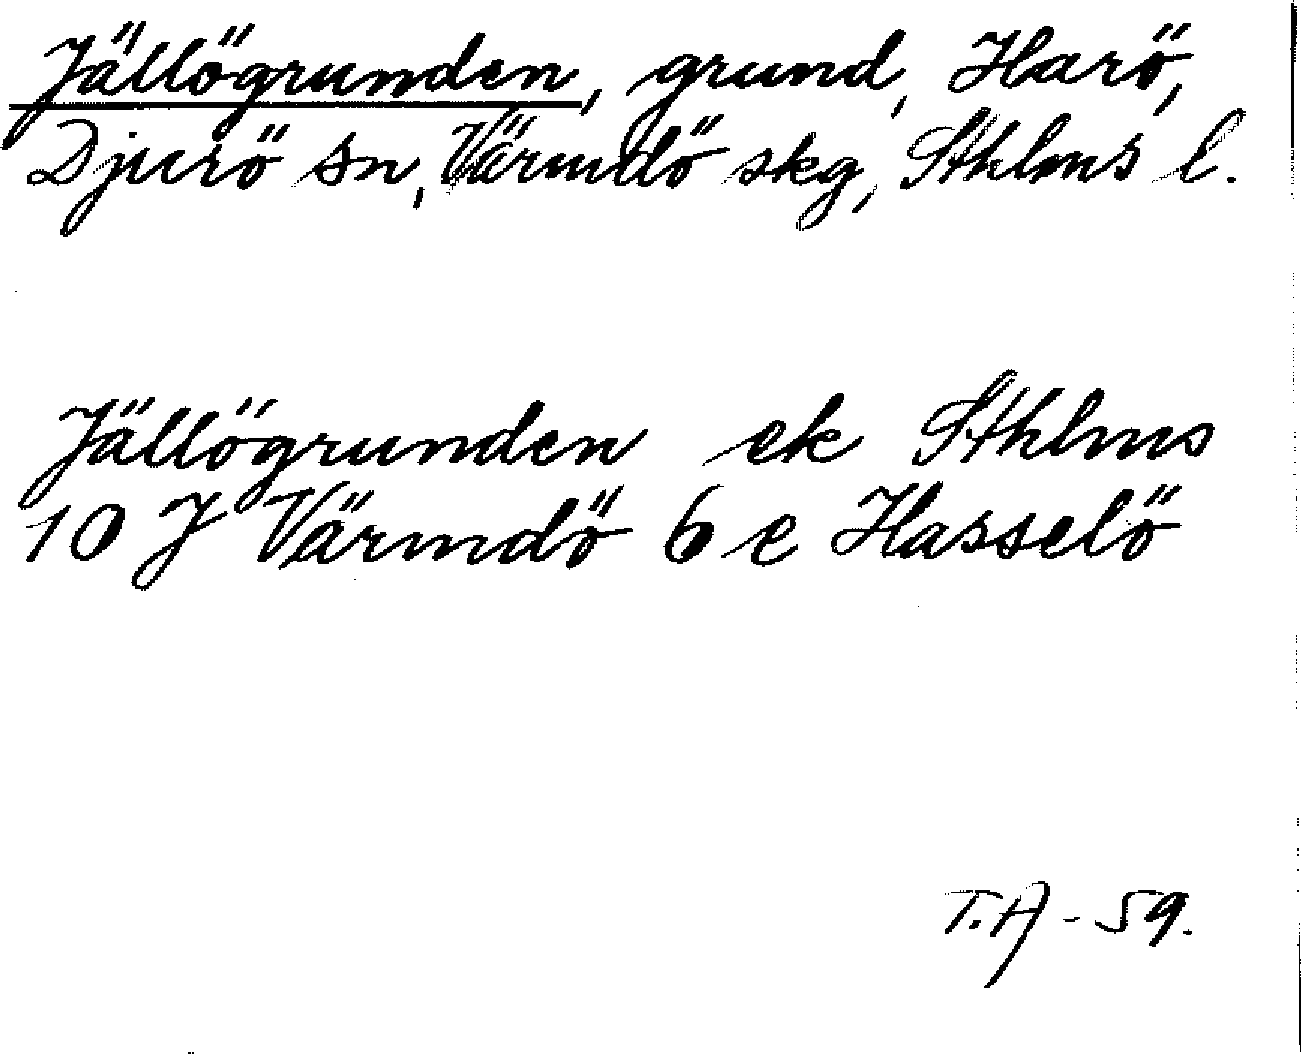 Jällögrunden, grund, Harö,
Djurö sn, Värmdö skg, Sthlms l.
Jällögrunden ek Sthlms
10 J Värmdö 6 e Hasselö
T.A - 59.